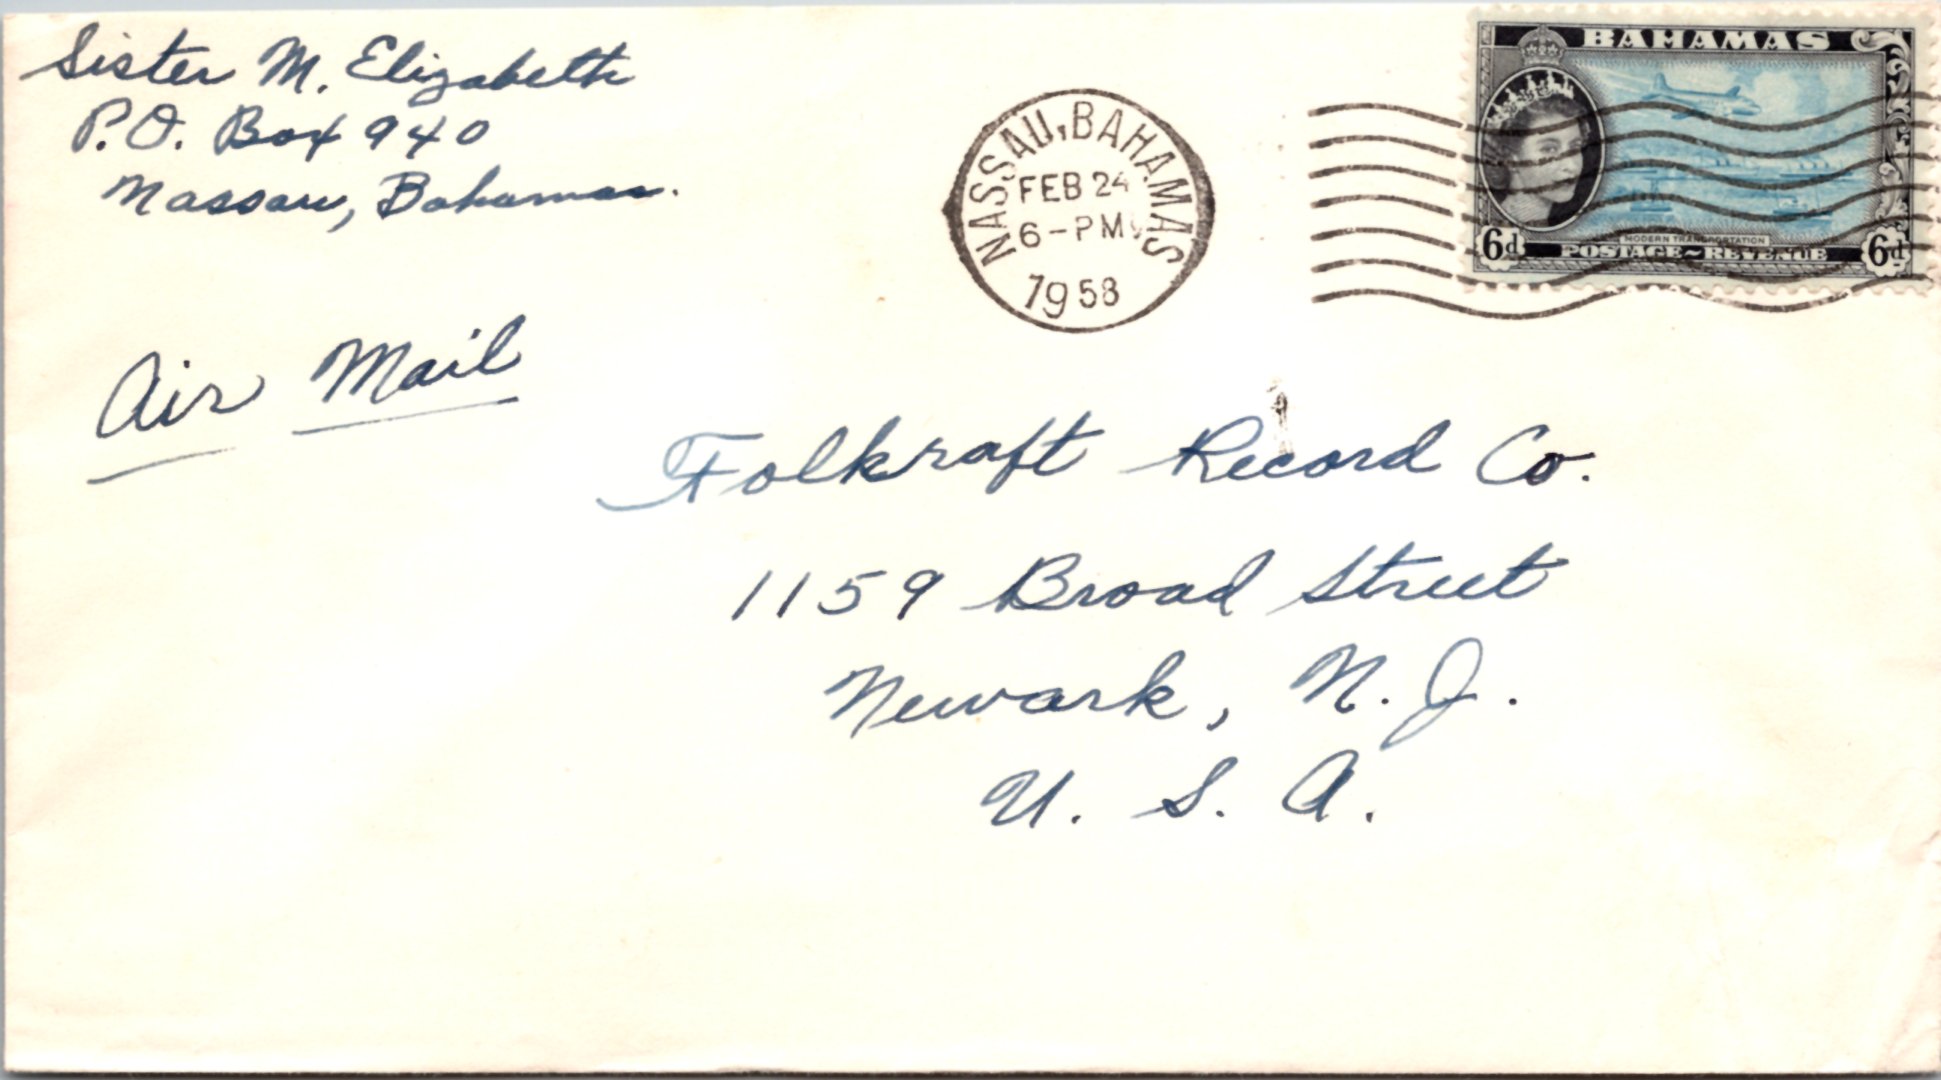 Sister M. Elizabeth
P.O. Box 940
Nassau, Bahamas.
NASSAU, BAHAMAS
FEB 24
6-PM
1958
BAHAMAS
6d
MODERN TRANSPORTATION
POSTAGE~REVENUE
6d
Air Mail
Folkraft Record Co.
1159 Broad Street
Newark, N. J.
U. S. A.